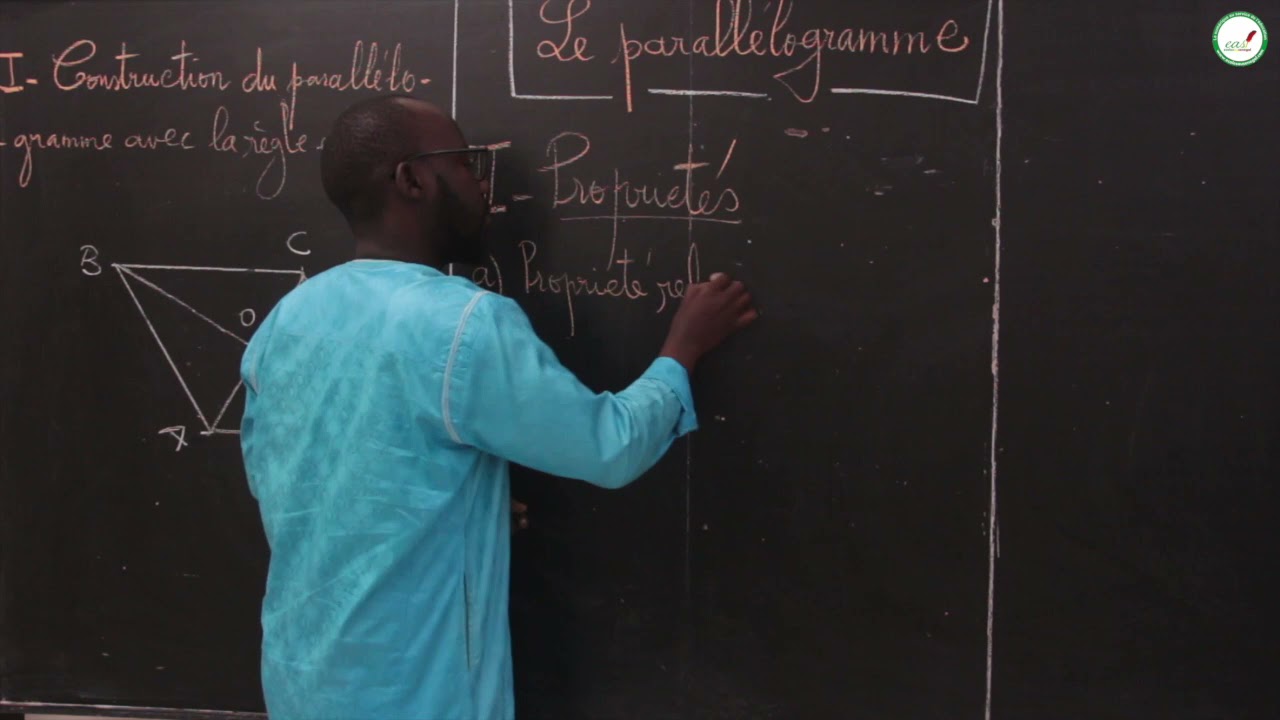 Le parallélogramme
I- Construction du parallélo-
-gramme avec la règle
B
C
O
A
I- Propriétés
a) Propriété rel
eas!